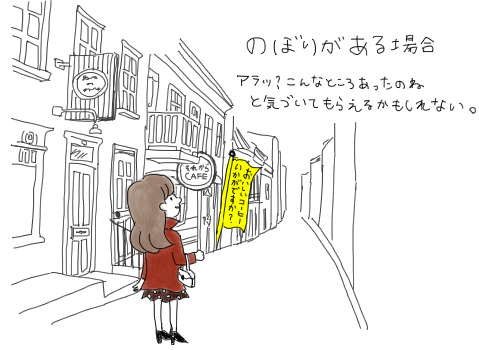 のぼりがある場合
アラッ?こんなところあったのね
と気づいてもらえるかもしれない。
それから
CAFE
おいしいコーヒー
いかがですか?